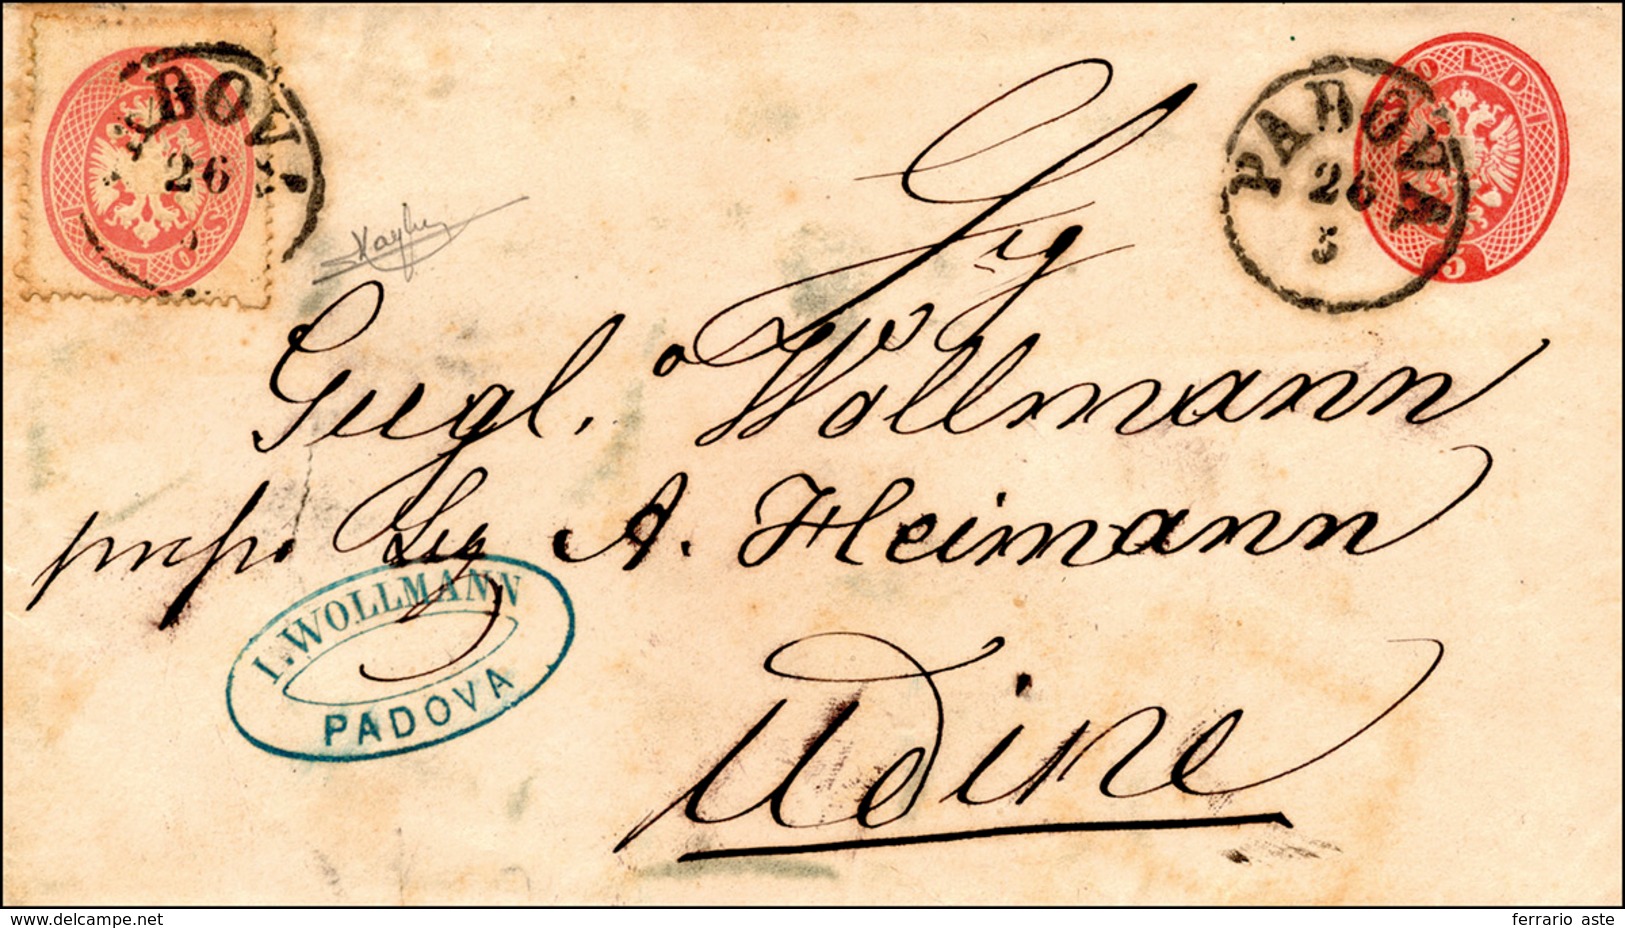 PADOVA
26
SOLDI
PADOVA
26
5
SOLDI
5
Sig
Gugl.o Wollmann
prespo Sig A. Heimann
Udine
I. WOLLMANN
PADOVA
delcampe.net
ferrario aste